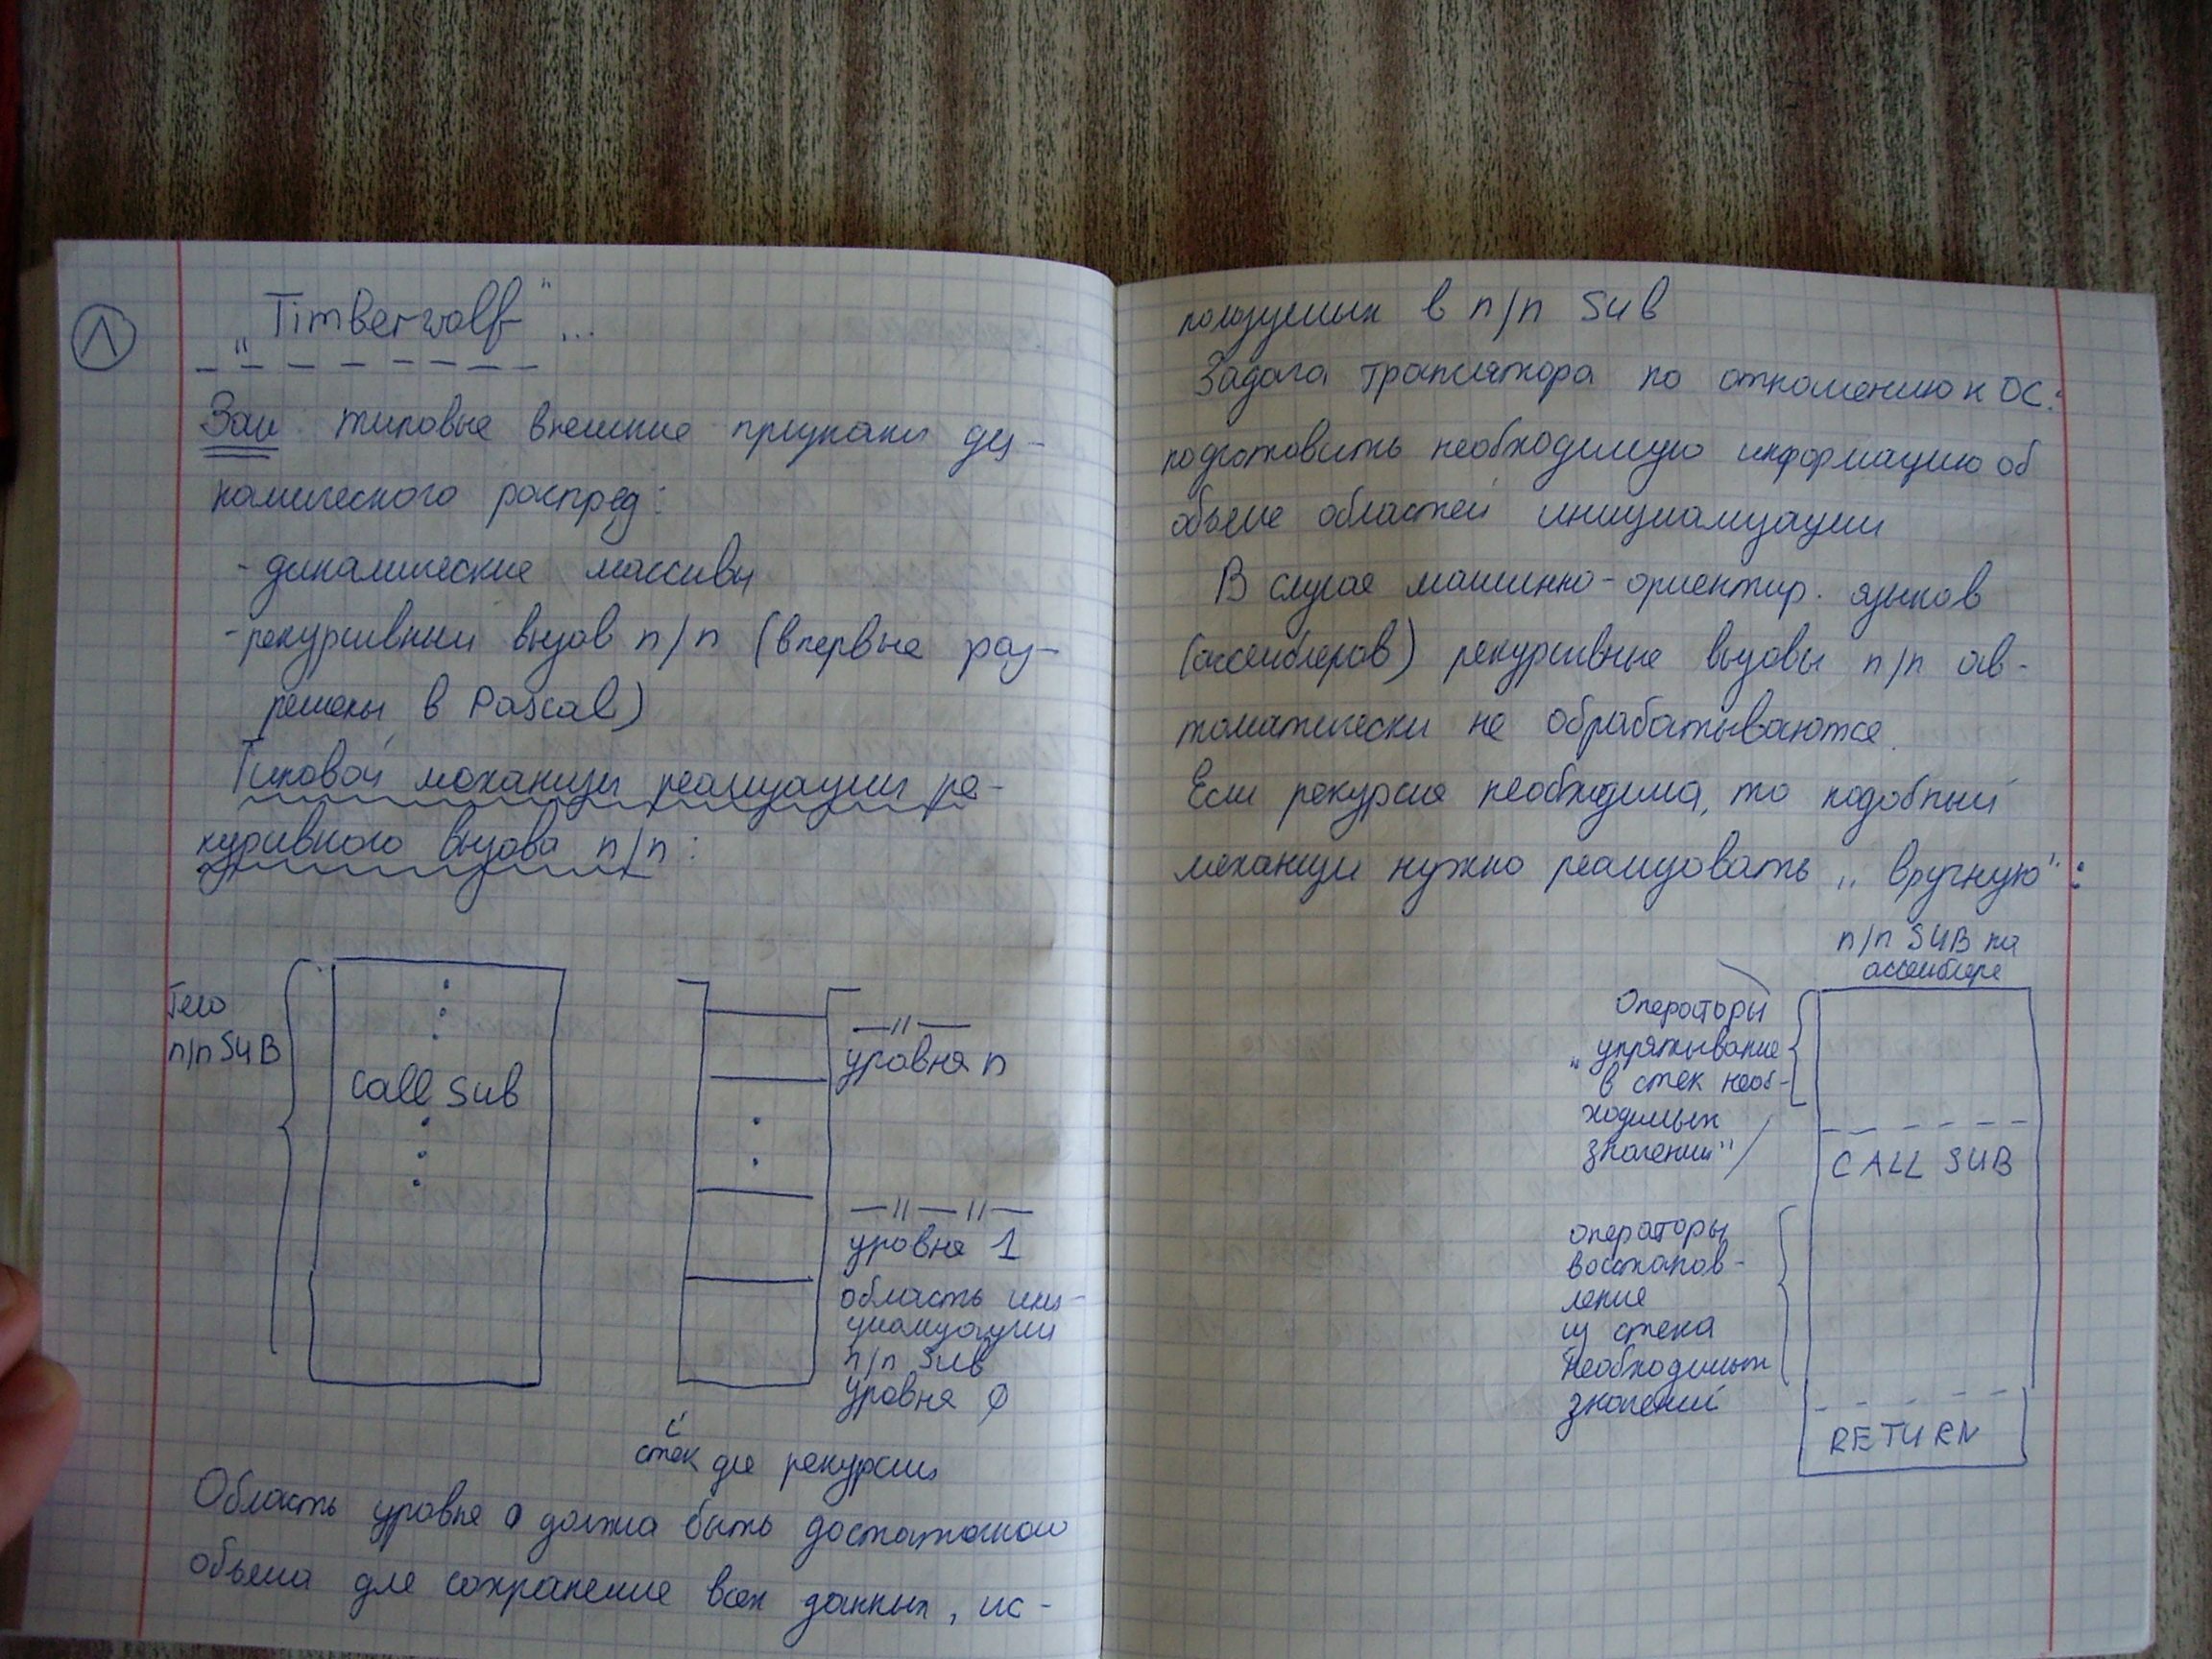 Л
„Timberwolf" ...
Зам: типовые внешние признаки ди-
намического распред:
- динамические массивы
- рекурсивный вызов п/п (впервые раз-
решены в Pascal)
Типовой механизм реализации ре-
курсивного вызова п/п:
Тело
п/п SUB
call sub
—//—
уровня n
—//—//—
уровня 1
область ини-
циализации
п/п Sub
уровня 0
стек для рекурсии
Область уровня 0 должна быть достаточной
объема для сохранения всех данных, ис-
пользуемых в п/п Sub
Задача транслятора по отношению к ОС:
подготовить необходимую информацию об
объеме областей инициализации
В случае машинно-ориентир. языков
(ассемблеров) рекурсивные вызовы п/п ав-
томатически не обрабатываются.
Если рекурсия необходима, то подобный
механизм нужно реализовать „вручную":
п/п SUB на
ассемблере
Операторы
„упрятывание
в стек необ-
ходимых
значений"
CALL SUB
операторы
восстанов-
ления
из стека
необходимых
значений
RETURN